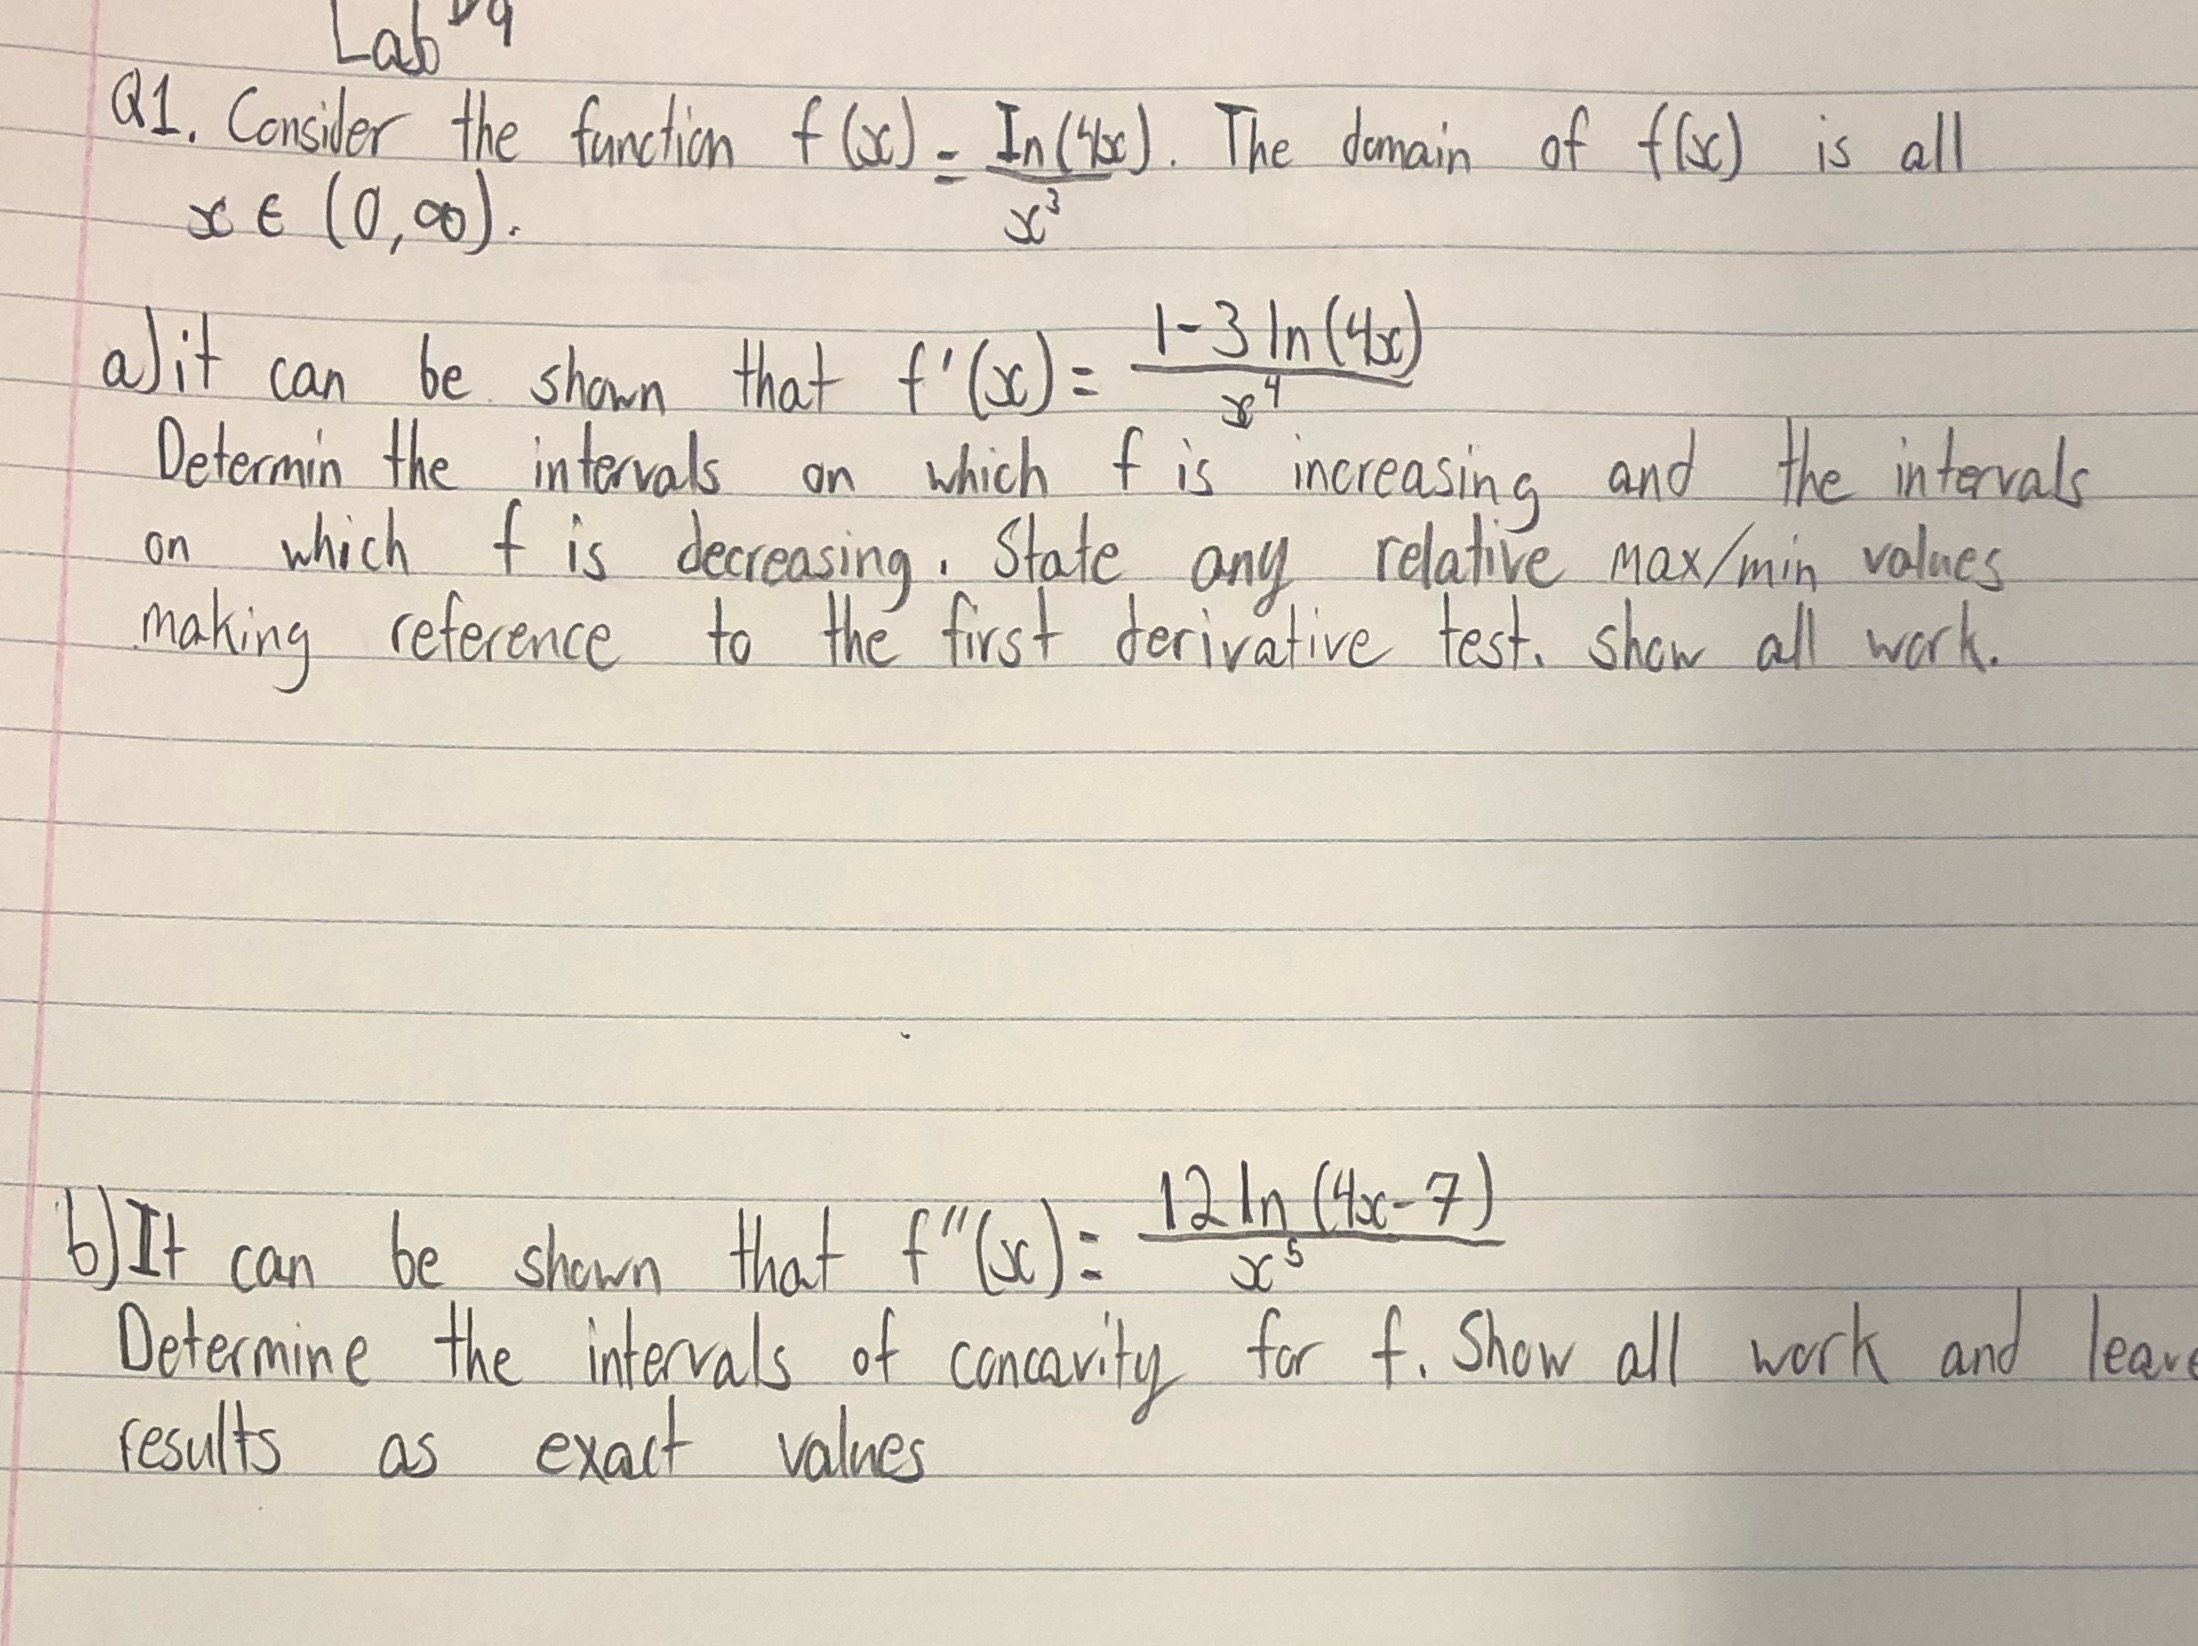 Lab
Q1. Consider the function f(x) = In(4x)/x³. The domain of f(x) is all
x ∈ (0,∞).
a) it can be shown that f'(x) = 1-3 ln(4x)/x⁴
Determin the intervals on which f is increasing and the intervals
on which f is decreasing. State any relative max/min values
making reference to the first derivative test. show all work.
b) It can be shown that f''(x) = 12 ln (4x-7)/x⁵
Determine the intervals of concavity for f. Show all work and leave
results as exact values